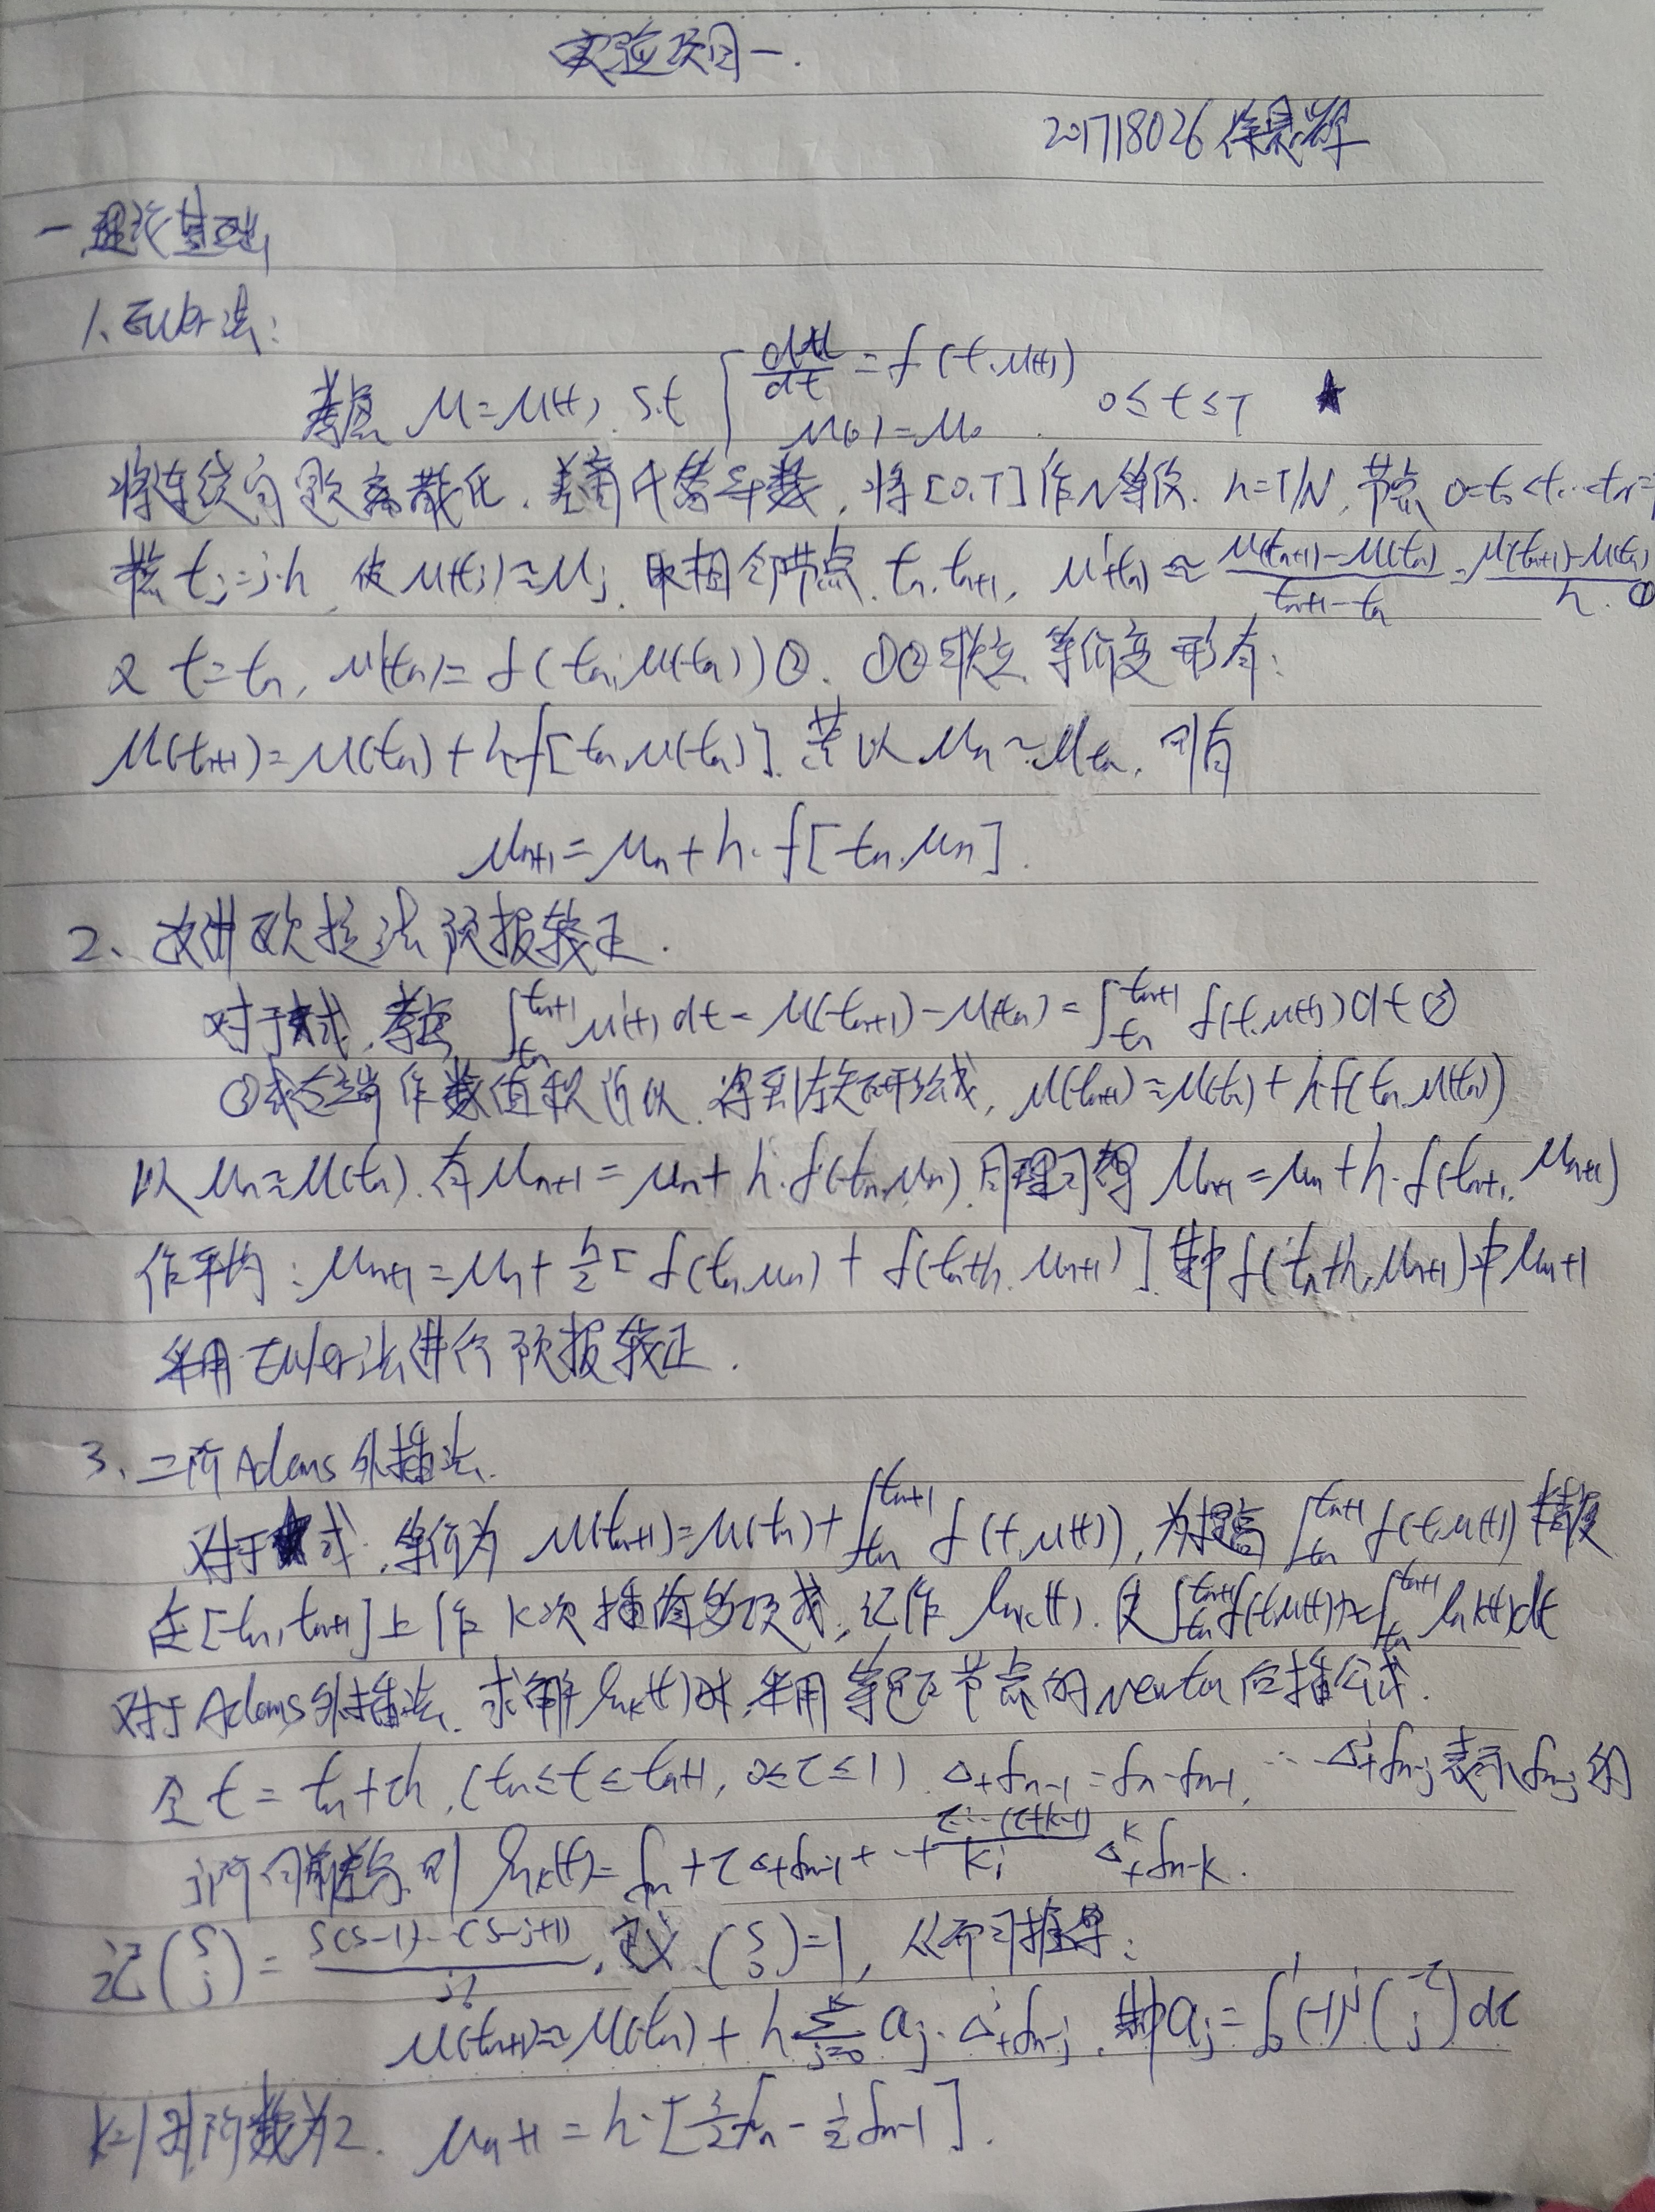 实验项目一.
201718026 徐景辉
一.理论基础
1、Euler法:
考虑 μ=μ(t), s.t { dμ/dt = f(t,μ(t)) μ(0)=μ₀. 0≤t≤T ★
将连续问题离散化. 差商代替导数, 将[0,T]作N等份. h=T/N, 节点 0=t₀<t₁…<t_N=T
tⱼ=j·h, 使μ(tⱼ)≈μⱼ. 取相邻节点 tₙ,tₙ₊₁, μ'(tₙ)≈(μ(tₙ₊₁)-μ(tₙ))/(tₙ₊₁-tₙ)=(μ(tₙ₊₁)-μ(tₙ))/h. ①
又 t=tₙ, μ'(tₙ)=f(tₙ,μ(tₙ))②. ①②联立, 等价变形有:
μ(tₙ₊₁)=μ(tₙ)+h·f[tₙ,μ(tₙ)]. 若以 μₙ~μtₙ. 则有
μₙ₊₁=μₙ+h·f[tₙ,μₙ].
2、改进欧拉法预报较正.
对于★式, 考虑 ∫_{tₙ}^{tₙ₊₁} μ'(t)dt=μ(tₙ₊₁)-μ(tₙ)=∫_{tₙ}^{tₙ₊₁} f(t,μ(t))dt ③
③式右端作数值积近似. 得到左矩形公式, μ(tₙ₊₁)≈μ(tₙ)+hf(tₙ,μ(tₙ))
以 μₙ≈μ(tₙ). 有 μₙ₊₁=μₙ+h·f(tₙ,μₙ). 同理可得 μₙ₊₁=μₙ+h·f(tₙ₊₁,μₙ₊₁)
作平均: μₙ₊₁=μₙ+h/2[f(tₙ,μₙ)+f(tₙ+h,μₙ₊₁)]. 其中f(tₙ+h,μₙ₊₁)中μₙ₊₁
采用Euler法进行预报较正.
3、二阶Adams外插法.
对于★式, 等价为 μ(tₙ₊₁)=μ(tₙ)+∫_{tₙ}^{tₙ₊₁} f(t,μ(t)), 为提高 ∫_{tₙ}^{tₙ₊₁} f(t,μ(t)) 精度
在[tₙ,tₙ₊₁]上作k次插值多项式, 记作 lₙ,ₖ(t). 使∫_{tₙ}^{tₙ₊₁} f(t,μ(t))≈∫_{tₙ}^{tₙ₊₁} lₙ,ₖ(t)dt
对于Adams外插法. 求解 lₙ,ₖ(t)时, 采用等距节点的Newton后插公式.
令 t=tₙ+τh, (tₙ≤t≤tₙ₊₁, 0≤τ≤1). Δ₊fₙ₋₁=fₙ-fₙ₋₁, … Δ₊ʲfₙ₋ⱼ表示fₙ₋ⱼ的
j阶向前差分. 则 lₙ,ₖ(t)=fₙ+τΔ₊fₙ₋₁+…+ τ…(τ+k-1)/k! Δ₊ᵏfₙ₋ₖ.
记 (s j) = s(s-1)…(s-j+1)/j!, 定义 (s 0)=1, 从而可推导:
μ(tₙ₊₁)≈μ(tₙ)+h∑_{j=0}^{k} aⱼ·Δ₊ʲfₙ₋ⱼ, 其中aⱼ=∫₀¹(-1)ʲ(-τ j)dτ
k=1时阶数为2. μₙ₊₁=h·[3/2fₙ-1/2fₙ₋₁].